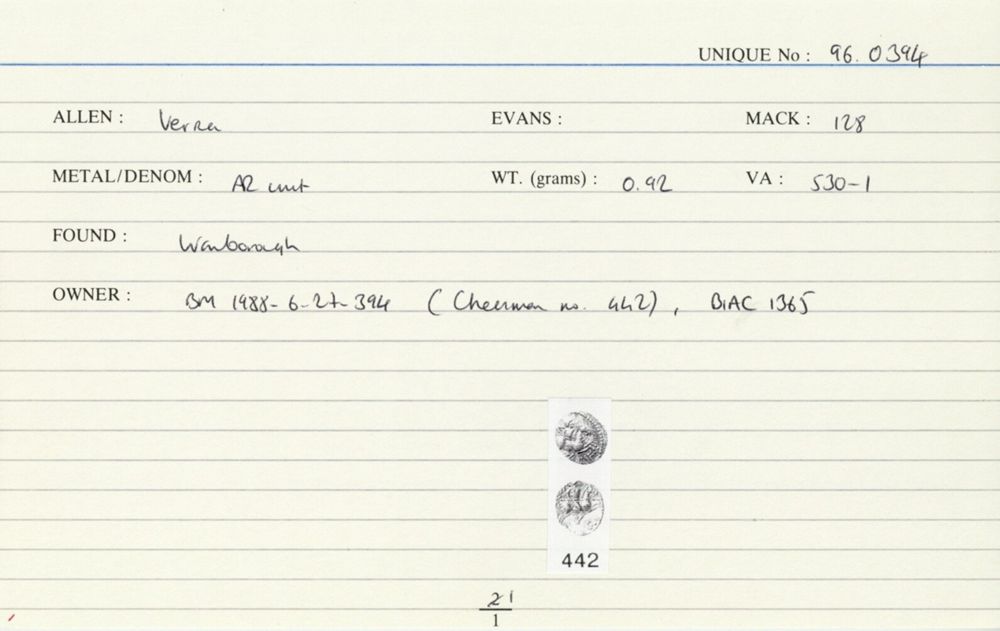 UNIQUE No : 96.0394
ALLEN : Verica EVANS : MACK : 128
METAL/DENOM : AR unit WT. (grams) : 0.92 VA : 530-1
FOUND : Wanborough
OWNER : BM 1988-6-27-394 (Cheesman no. 442), BIAC 1365
442
21
1